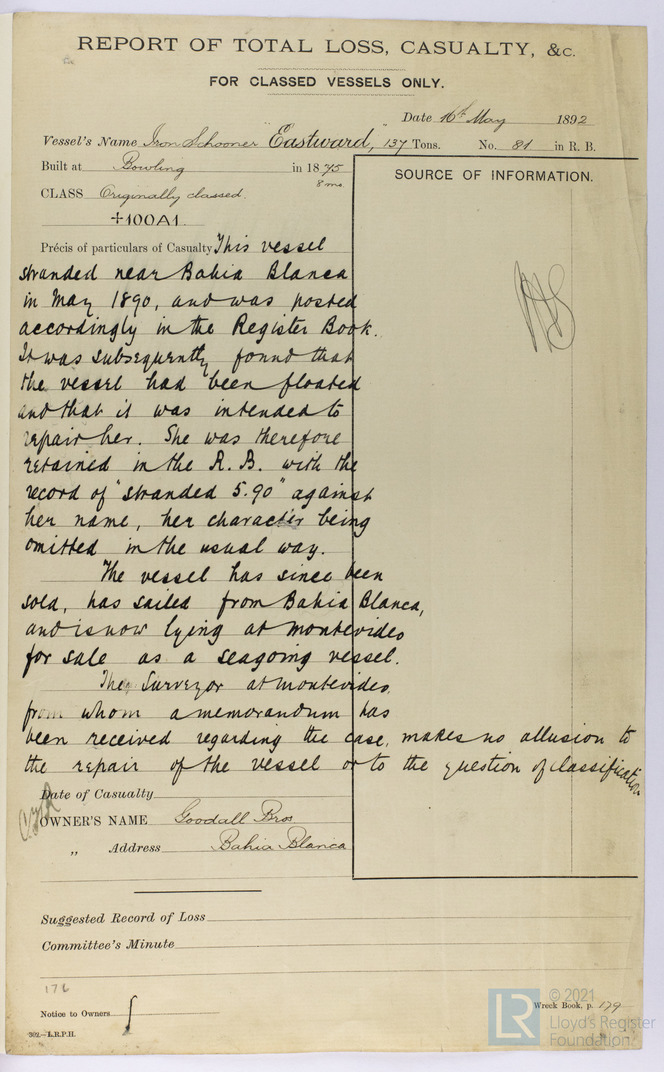 REPORT OF TOTAL LOSS, CASUALTY, &c.
FOR CLASSED VESSELS ONLY.
Date 16th May 1892
Vessel's Name Iron Schooner "Eastward," 137 Tons. No. 81 in R. B.
Built at Bowling in 1875
8 mo
SOURCE OF INFORMATION.
CLASS Originally classed.
+100A1.
Précis of particulars of Casualty This vessel
stranded near Bahia Blanca
in May 1890, and was posted
accordingly in the Register Book.
It was subsequently found that
the vessel had been floated
and that it was intended to
repair her. She was therefore
retained in the R. B. with the
record of "stranded 5.90" against
her name, her character being
omitted in the usual way.
The vessel has since been
sold, has sailed from Bahia Blanca,
and is now lying at Montevideo
for sale as a seagoing vessel.
The Surveyor at Montevideo,
from whom a memorandum has
been received regarding the case, makes no allusion to
the repair of the vessel or to the question of classification
Date of Casualty
OWNER'S NAME Goodall Bros
„ Address Bahia Blanca
Suggested Record of Loss
Committee's Minute
176
Notice to Owners
Wreck Book, p. 179
202.—L.R.P.H.
LR
© 2021
Lloyd's Register
Foundation